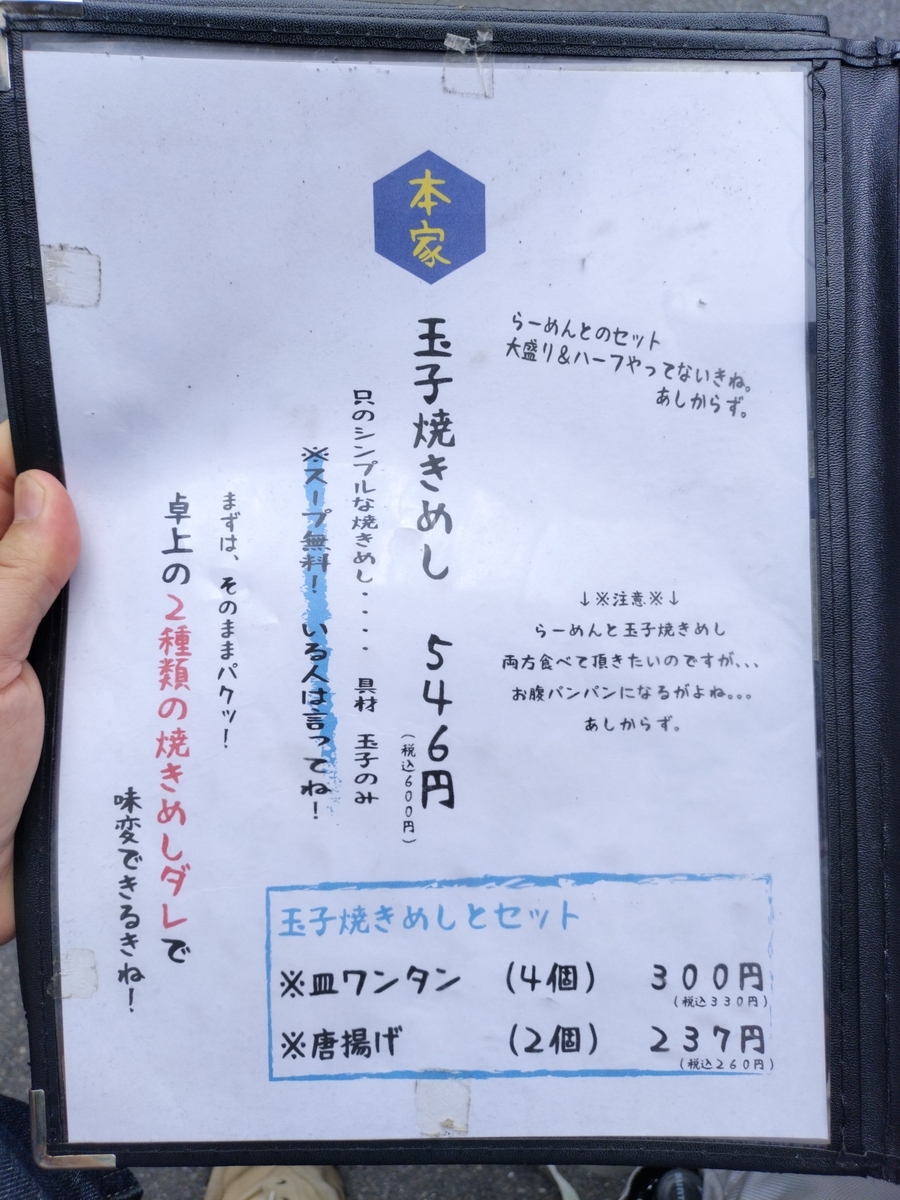 本家
らーめんとのセット
大盛り&ハーフやってないきね。
あしからず。
玉子焼きめし 546円
(税込600円)
只のシンプルな焼きめし・・・・ 具材 玉子のみ
※スープ無料！いる人は言ってね！
まずは、そのままパクッ！
卓上の2種類の焼きめしダレで
味変できるきね！
↓※注意※↓
らーめんと玉子焼きめし
両方食べて頂きたいのですが、、、
お腹パンパンになるがよね。。。
あしからず。
玉子焼きめしとセット
※皿ワンタン (4個) 300円
(税込330円)
※唐揚げ (2個) 237円
(税込260円)